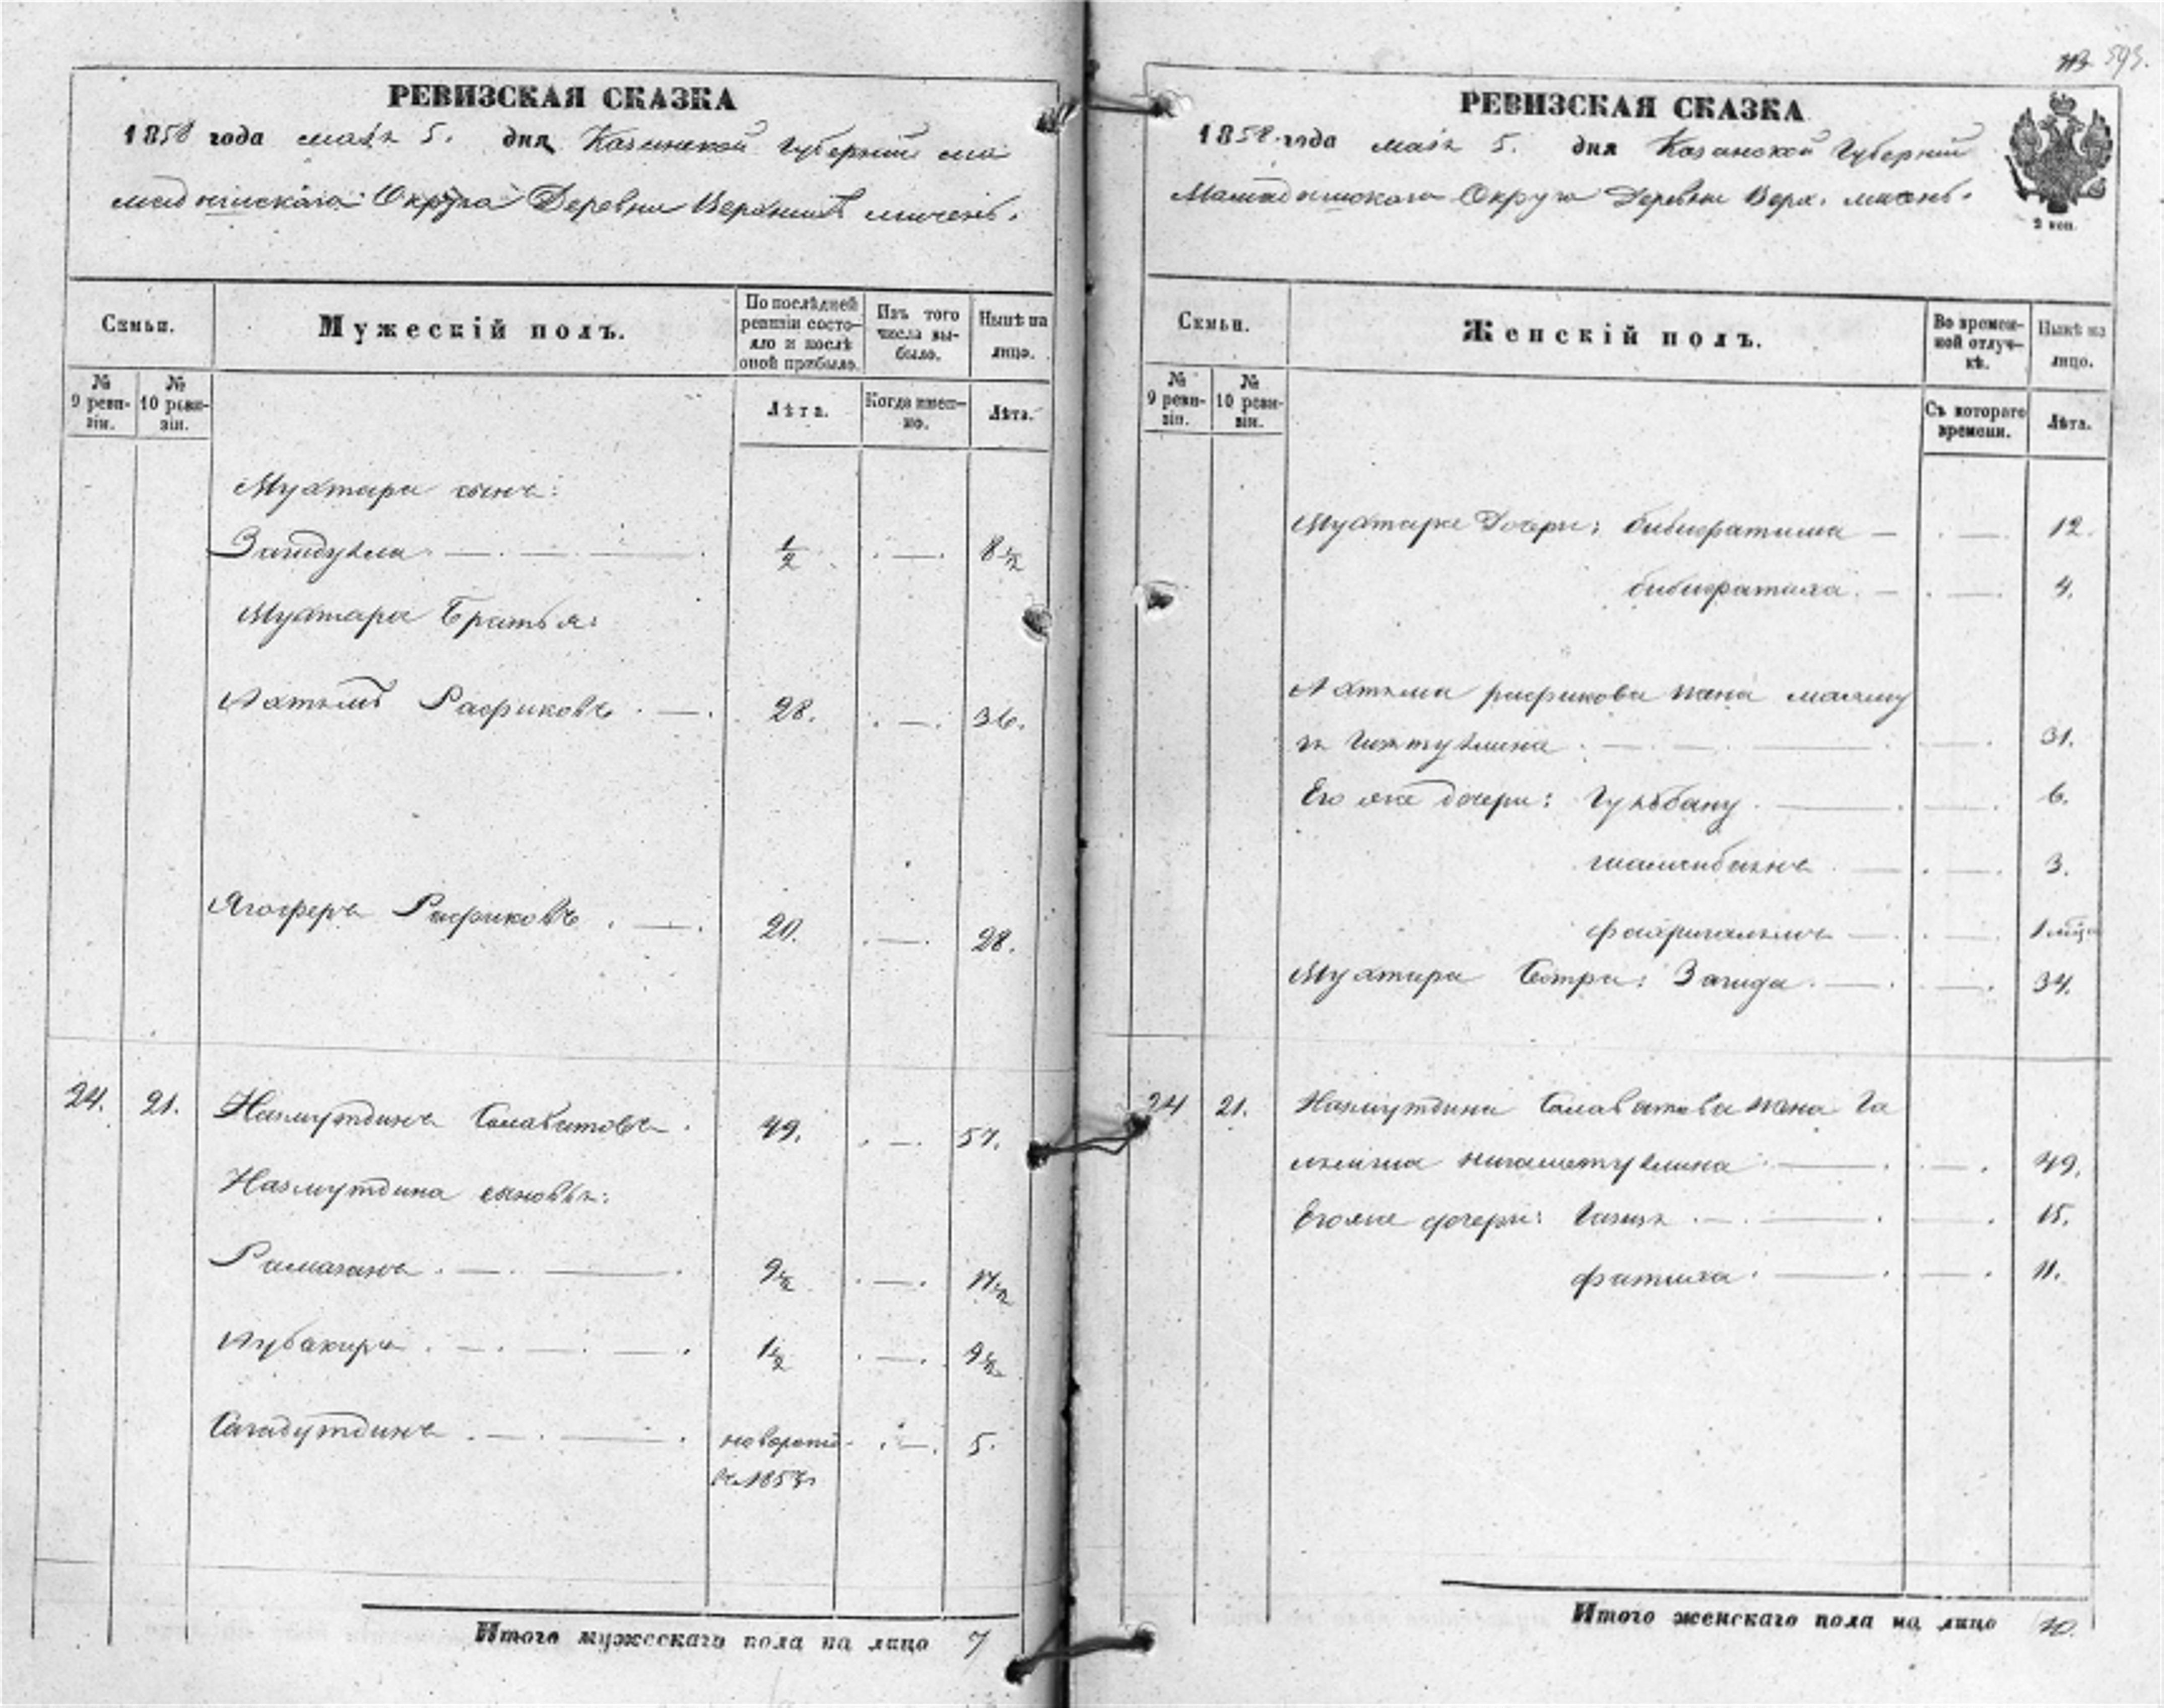 593.
РЕВИЗСКАЯ СКАЗКА
1858 года маія 5. дня Казанской Губерніи Ма
мадышскаго Округа Деревни Верхнихъ
Семьи.
Мужескій полъ.
По послѣдней ревизіи состояло и послѣ оной прибыло.
Изъ того числа выбыло.
Нынѣ на лицо.
№ 9 реви-зіи.
№ 10 реви-зіи.
Лѣта.
Когда имен-но.
Лѣта.
Мухтара сынъ:
Загидулла 1/2 8 1/2
Мухтара Братья:
Рафиковъ 28. 36.
Ягоферъ Рафиковъ 20. 28.
24. 21. Назмутдинъ Салаватовъ 49. 57.
Назмутдина сыновья:
Рамазанъ 9 1/2 17 1/2
Абубакиръ 1 1/2 9 1/2
Сагадутдинъ новорож- 5.
въ 1853
Итого мужескаго пола на лицо 7
РЕВИЗСКАЯ СКАЗКА
1858 года маія 5. дня Казанской Губерніи
Мамадышскаго Округа Деревни Верх.
2 коп.
Семьи.
Женскій полъ.
Во времен-ной отлуч-кѣ.
Нынѣ на лицо.
№ 9 реви-зіи.
№ 10 реви-зіи.
Съ котораго времени.
Лѣта.
Мухтара Дочери: 12.
4.
рафикова жена
31.
Его же дочери: Гульбану 6.
3.
1
Мухтара Сестра: Загида 34.
24 21. Назмутдина Салаватова жена Га
нигаметуллина 49.
Его же дочери: 15.
фатиха 11.
Итого женскаго пола на лицо 10.